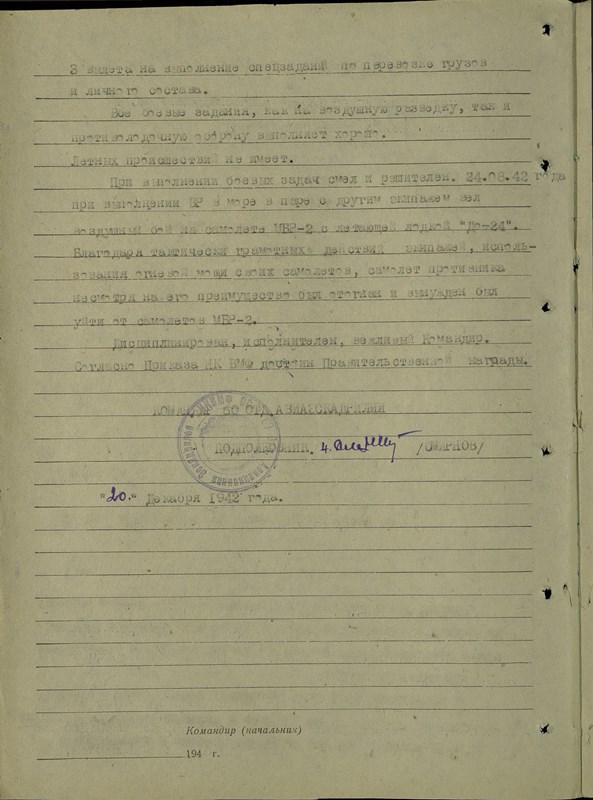 3 вылета на выполнение спецзаданий по перевозке грузов
и личного состава.
Все боевые задания, как на воздушную разведку, так и
противолодочную оборону выполняет хорошо.
Летных происшествий не имеет.
При выполнении боевых задач смел и решителен. 24.08.42 года
при выполнении ВР в море в паре с другим экипажем вел
воздушный бой на самолете МБР-2 с летающей лодкой "До-24".
Благодаря тактически грамотных действий экипажей, исполь-
зования огневой мощи своих самолетов, самолет противника
несмотря на его преимущество был отогнан и вынужден был
уйти от самолетов МБР-2.
Дисциплинирован, исполнителен, вежливый Командир.
Согласно Приказа НК ВМФ достоин Правительственной награды.
КОМАНДИР ОТД. АВИАЭСКАДРИЛИИ
ПОДПОЛКОВНИК /СМИРНОВ/
"20." Декабря 1942 года.
Командир (начальник)
194 г.